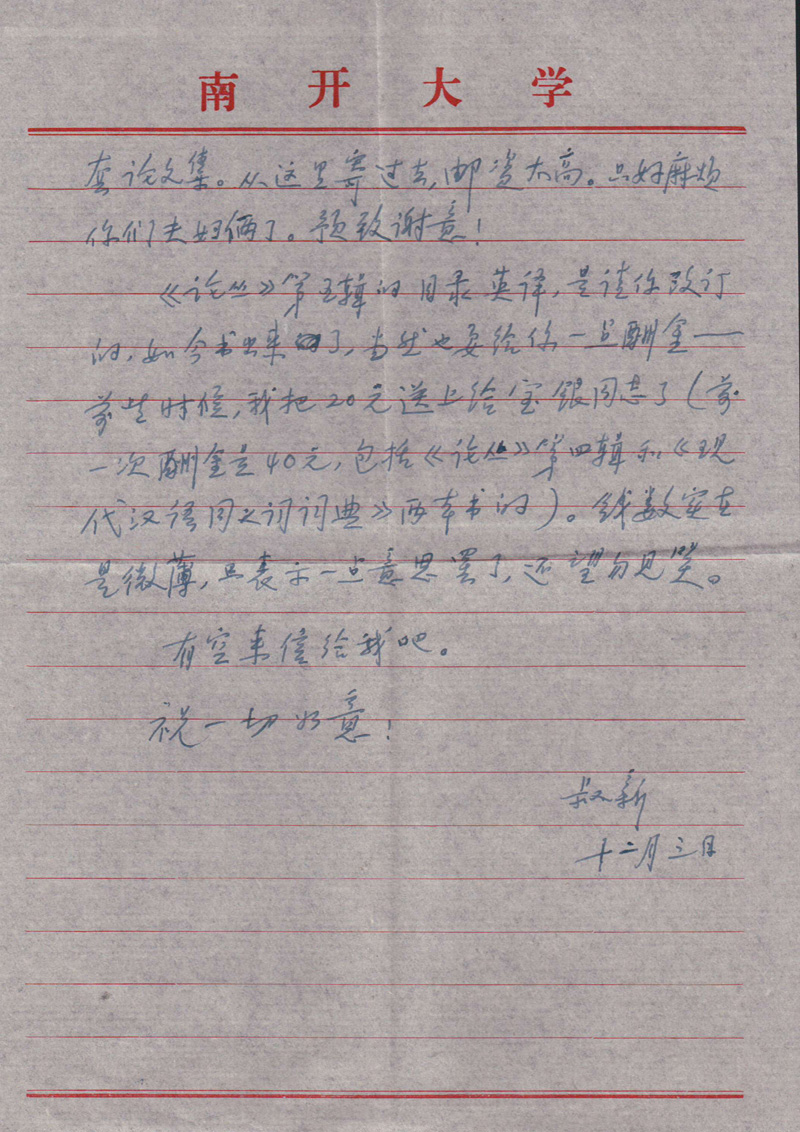 南开大学
套论文集。从这里寄过去，邮资太高。只好麻烦
你们夫妇俩了。预致谢意！
《论丛》第五辑的目录英译，是请你改订
的，如今书出来了，当然也要给你一点酬金——
前些时候，我把20元送上给宝银同志了（前
一次酬金是40元，包括《论丛》第四辑和《现
代汉语同义词词典》两本书的）。钱数实在
是微薄，只表示一点意思罢了，还望勿见笑。
有空来信给我吧。
祝一切如意！
叔新
十二月三日